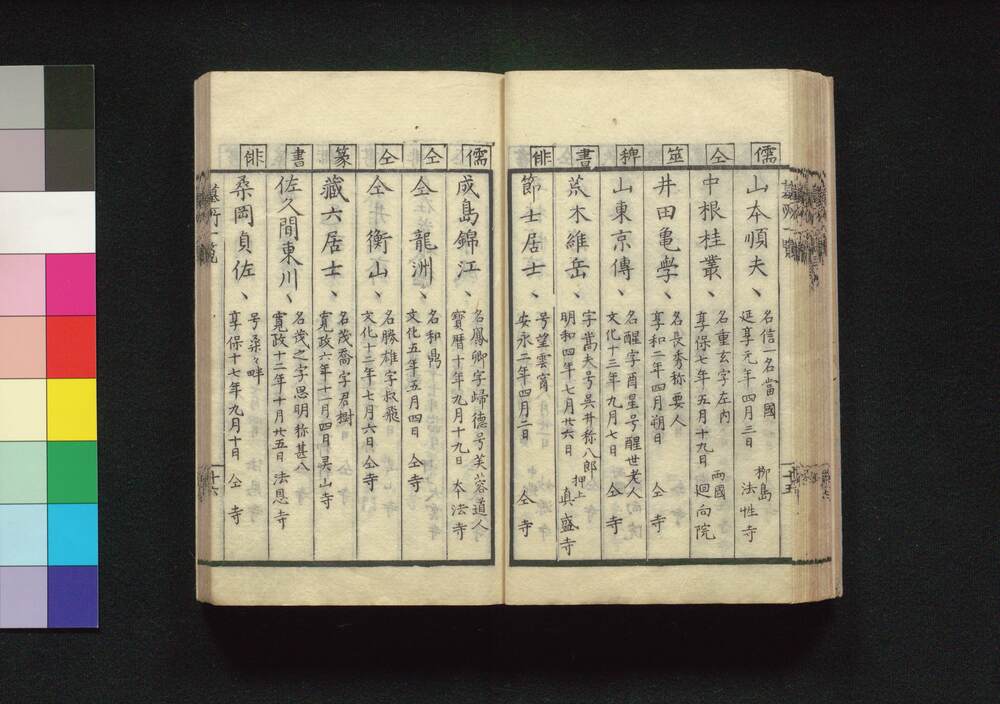 儒
山本順夫、
名信一名當國
延享元年四月三日
柳島
法性寺
仝
中根桂叢、
名重玄字左内
享保七年五月十九日
両國
廻向院
筮
井田亀学、
名長秀称要人
享和二年四月朔日
仝寺
稗
山東京傳、
名醒字酉星号醒世老人
文化十三年九月七日
仝寺
書
荒木維岳、
字嵩夫号呉井称八郎
明和四年七月廿六日
押上
真盛寺
俳
節士居士、
号望雲窩
安永二年四月二日
仝寺
十五
儒
成島錦江、
名鳳卿字歸德号芙蓉道人
寳暦十年九月十九日
本法寺
仝
仝龍洲、
名和鼎
文化五年五月四日
仝寺
仝
仝井衡山、
名勝雄字叔飛
文化十二年七月六日
仝寺
篆
藏六居士、
名茂喬字君樹
寛政六年十一月四日
灵山寺
書
佐久間東川、
名茂之字思明称甚八
寛政十二年十月廿五日
法恩寺
俳
桑岡貞佐、
号桑々畔
享保十七年九月十日
仝寺
墓所一覧
十六